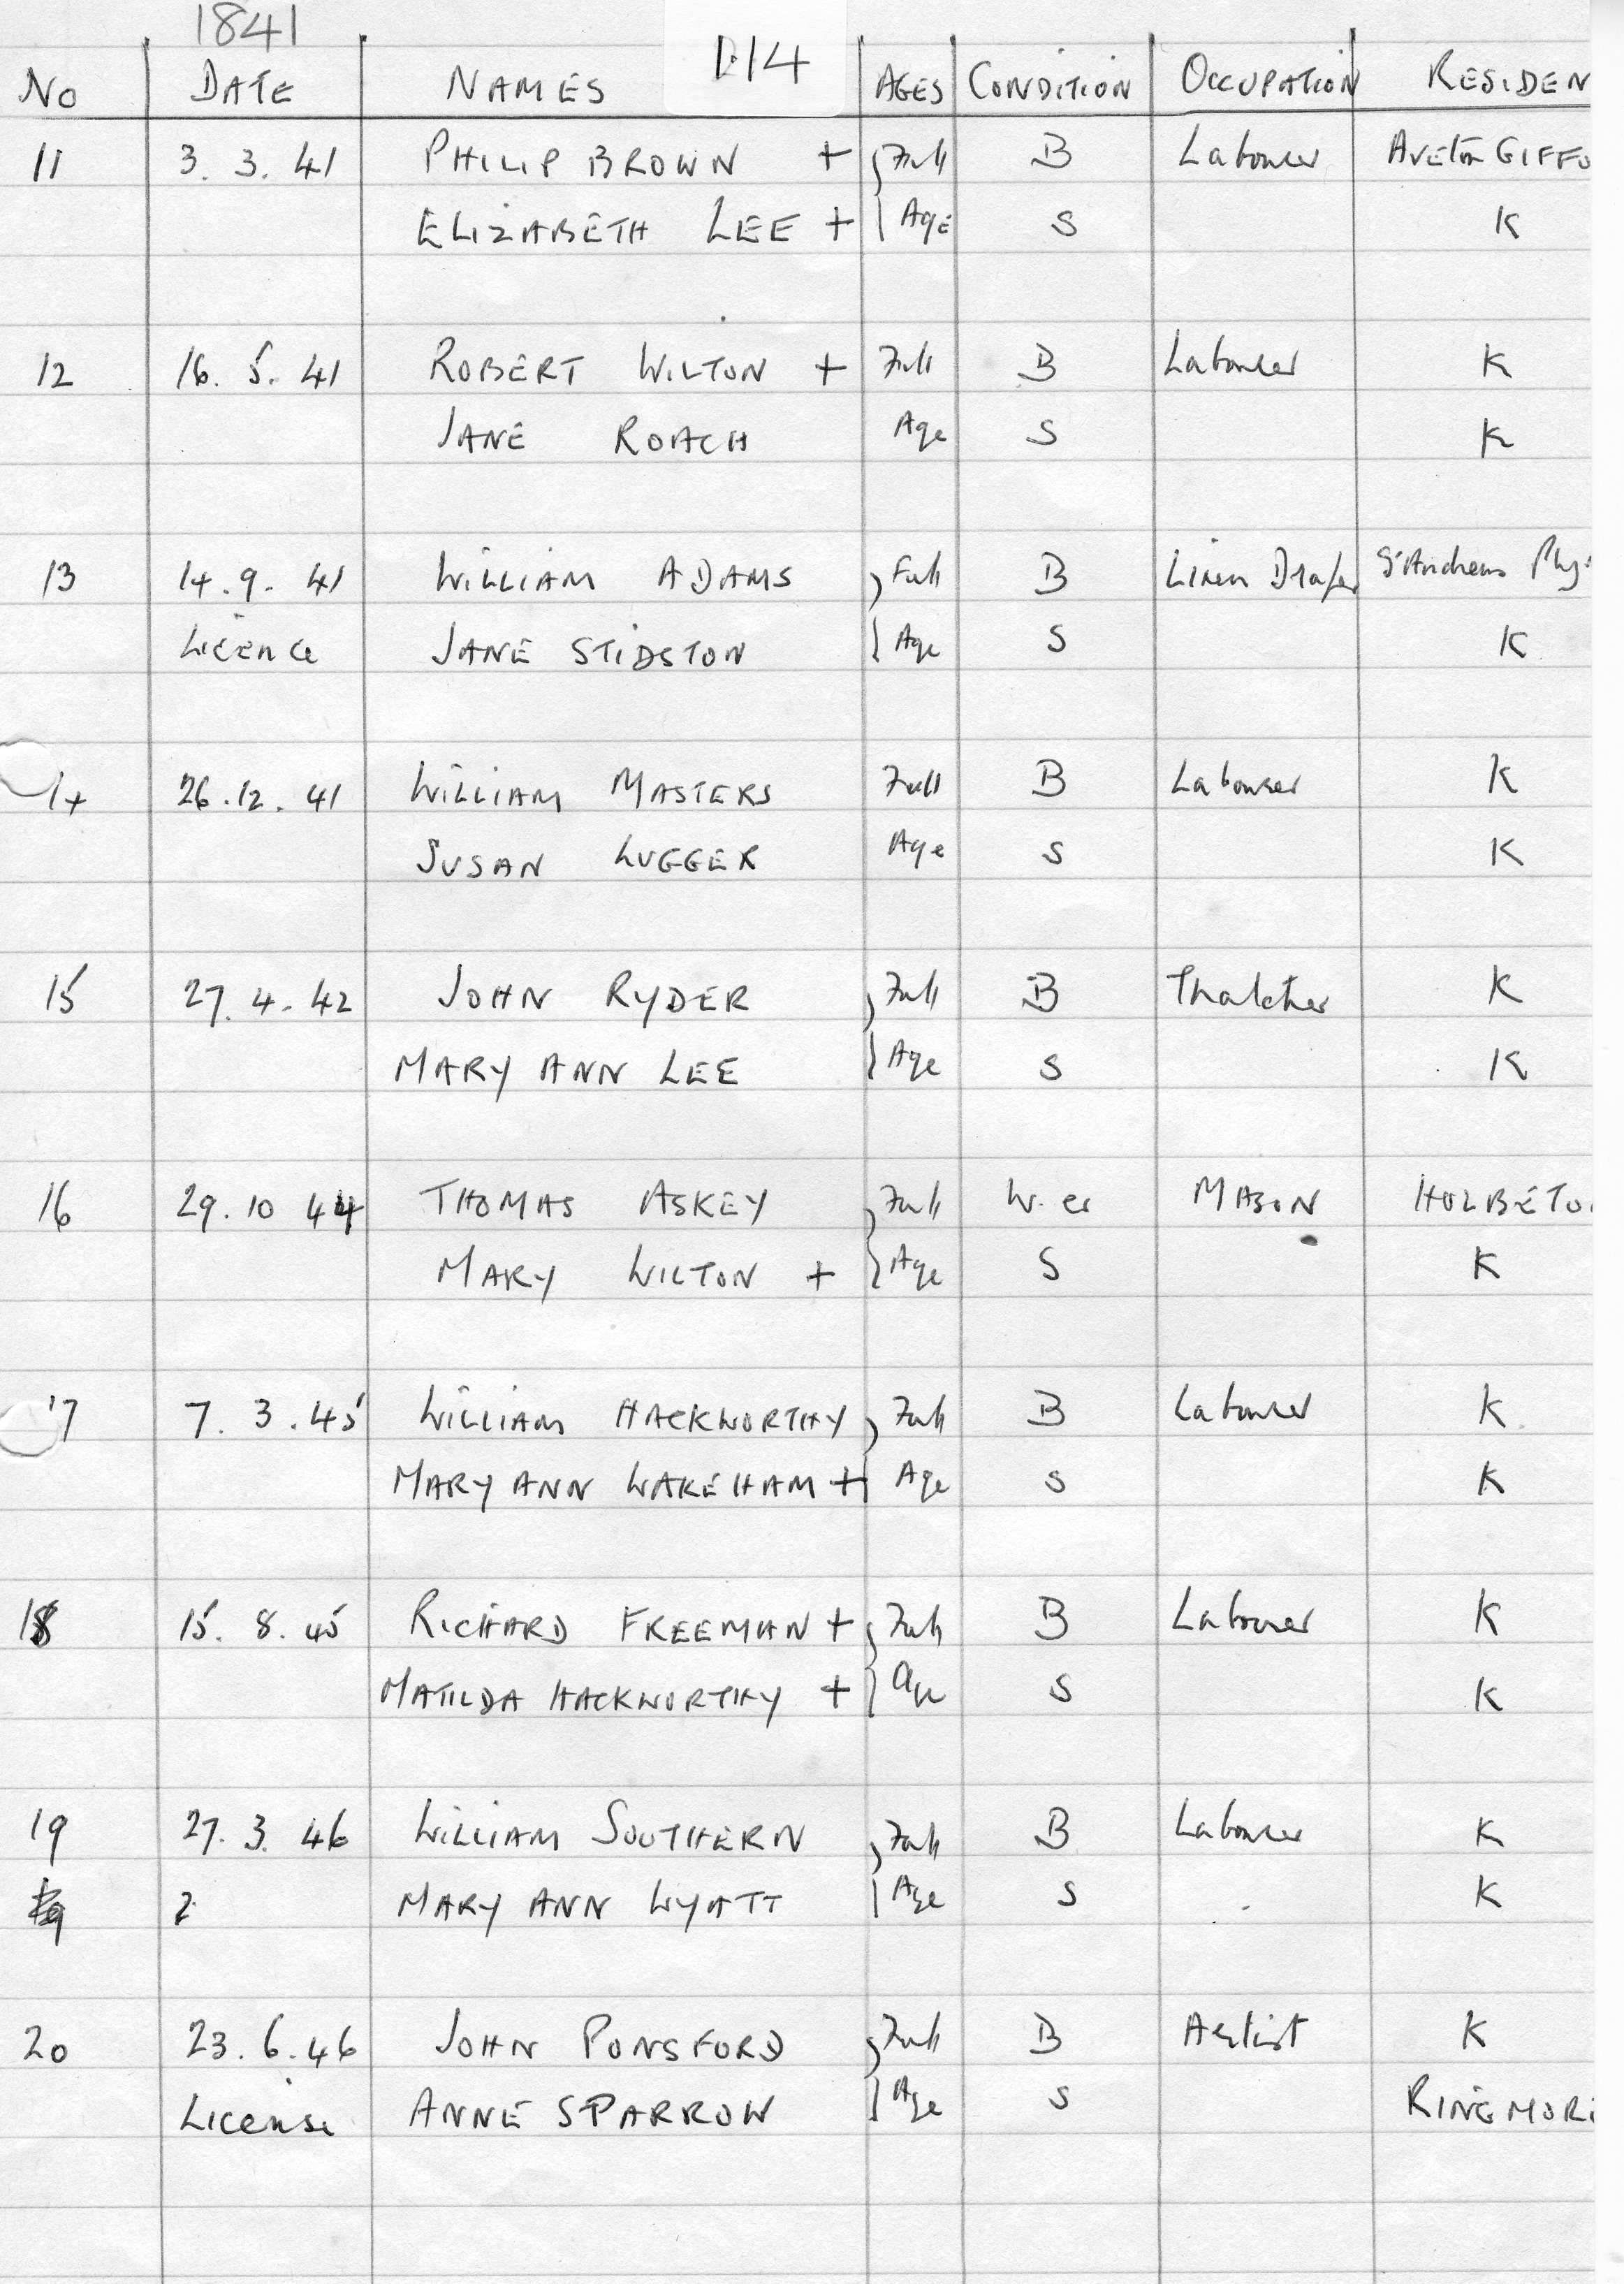 1841
114
No DATE NAMES AGES CONDITION OCCUPATION RESIDEN
11 3. 3. 41 PHILIP BROWN + Full B Labourer AVETON GIFFO
ELIZABETH LEE + Age S K
12 16. 5. 41 ROBERT WILTON + Full B Labourer K
JANE ROACH Age S K
13 14. 9. 41 WILLIAM ADAMS Full B Linen Draper St Andrews Ply
Licence JANE STIDSTON Age S K
14 26. 12. 41 WILLIAM MASTERS Full B Labourer K
SUSAN LUGGER Age S K
15 27. 4. 42 JOHN RYDER Full B Thatcher K
MARY ANN LEE Age S K
16 29. 10 44 THOMAS ASKEY Full W. er MASON HOLBETO
MARY WILTON + Age S K
17 7. 3. 45 WILLIAM HACKWORTHY Full B Labourer K
MARY ANN WAKEHAM + Age S K
18 15. 8. 45 RICHARD FREEMAN + Full B Labourer K
MATILDA HACKWORTHY + Age S K
19 27. 3. 46 WILLIAM SOUTHERN Full B Labourer K
2 MARY ANN WYATT Age S K
20 23. 6. 46 JOHN PONSFORD Full B Artist K
License ANNE SPARROW Age S RINGMOR